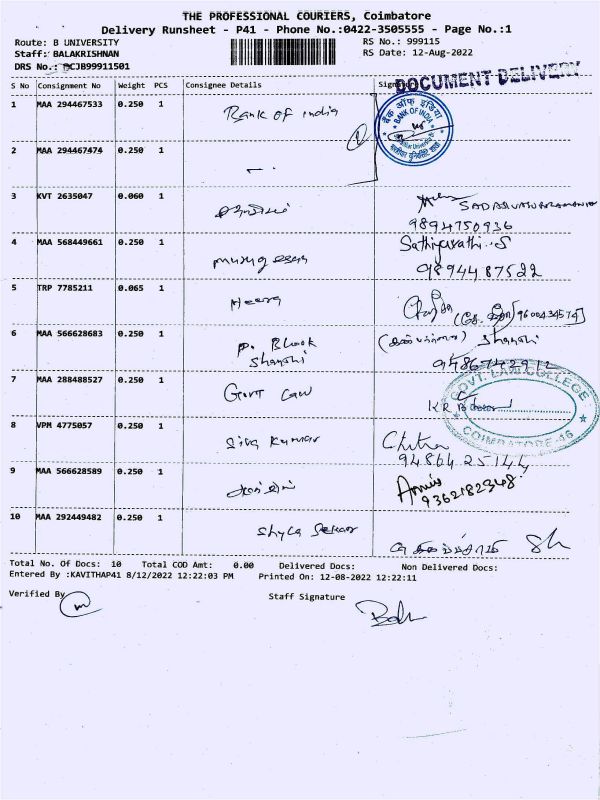 THE PROFESSIONAL COURIERS, Coimbatore
Delivery Runsheet - P41 - Phone No.:0422-3505555 - Page No.:1
Route: B UNIVERSITY RS No.: 999115
Staff: BALAKRISHNAN RS Date: 12-Aug-2022
DRS No.: DCJB99911501
DOCUMENT DELIVERY
S No Consignment No Weight PCS Consignee Details
1 MAA 294467533 0.250 1 Bank of india
बैंक ऑफ इंडिया
BANK OF INDIA
2 MAA 294467474 0.250 1
3 KVT 2635047 0.060 1
9894750936
4 MAA 568449661 0.250 1 murugesan Sathiyavathi.S
9894487522
5 TRP 7785211 0.065 1 Heera
9600434574
6 MAA 566628683 0.250 1 P. Block Shanthi Shanthi
7 MAA 288488527 0.250 1 Govt Law
GOVT. LAW COLLEGE
COIMBATORE-46
8 VPM 4775057 0.250 1 Siva Kumar Chitra
94864 25144
9 MAA 566628589 0.250 1
9362182348
10 MAA 292449482 0.250 1 Shyla Sekar
Total No. Of Docs: 10 Total COD Amt: 0.00 Delivered Docs: Non Delivered Docs:
Entered By :KAVITHAP41 8/12/2022 12:22:03 PM Printed On: 12-08-2022 12:22:11
Verified By Staff Signature